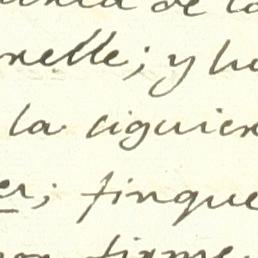 de la
nelle; y h
la siguien
er; finque
firme